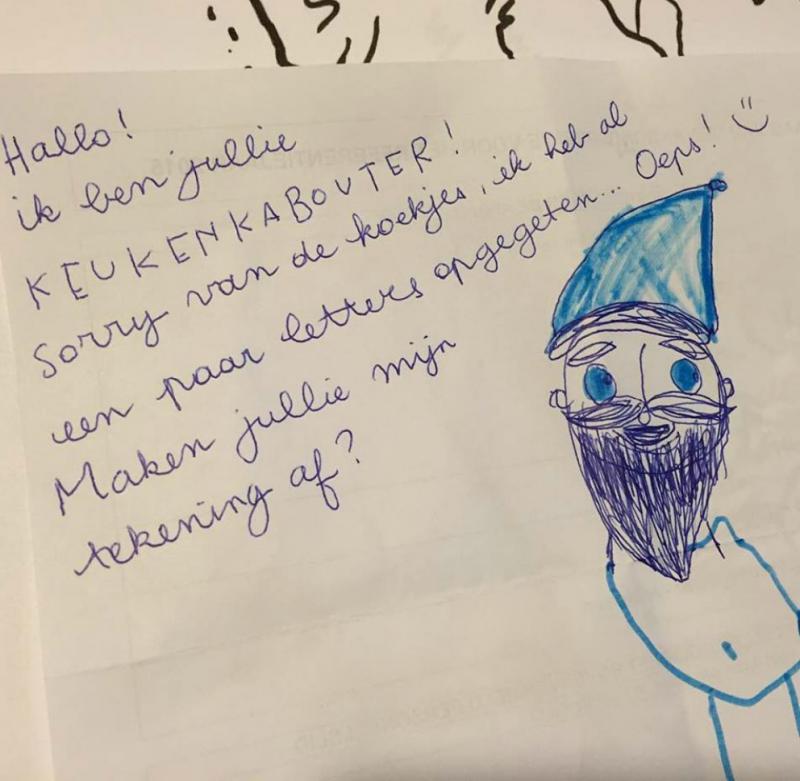 Hallo!
ik ben jullie
KEUKENKABOUTER!
Sorry van de koekjes, ik heb al
een paar letters opgegeten... Oeps! :)
Maken jullie mijn
tekening af?